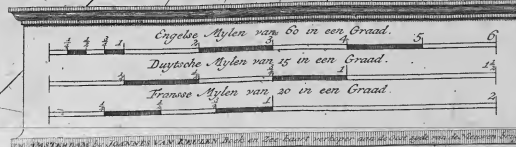 Engelse Mylen van 60 in een Graad.
1/4 1/2 3/4 1 2 3 4 5 6
Duytsche Mylen van 15 in een Graad.
1/4 1/2 3/4 1 1 1/2
Franse Mylen van 20 in een Graad.
1/4 1/2 3/4 1 2
AMSTERDAM by JOANNES VAN KEULEN Boek en Zee kaart verkoper aan de Oost zyde van de Nieuwen brug